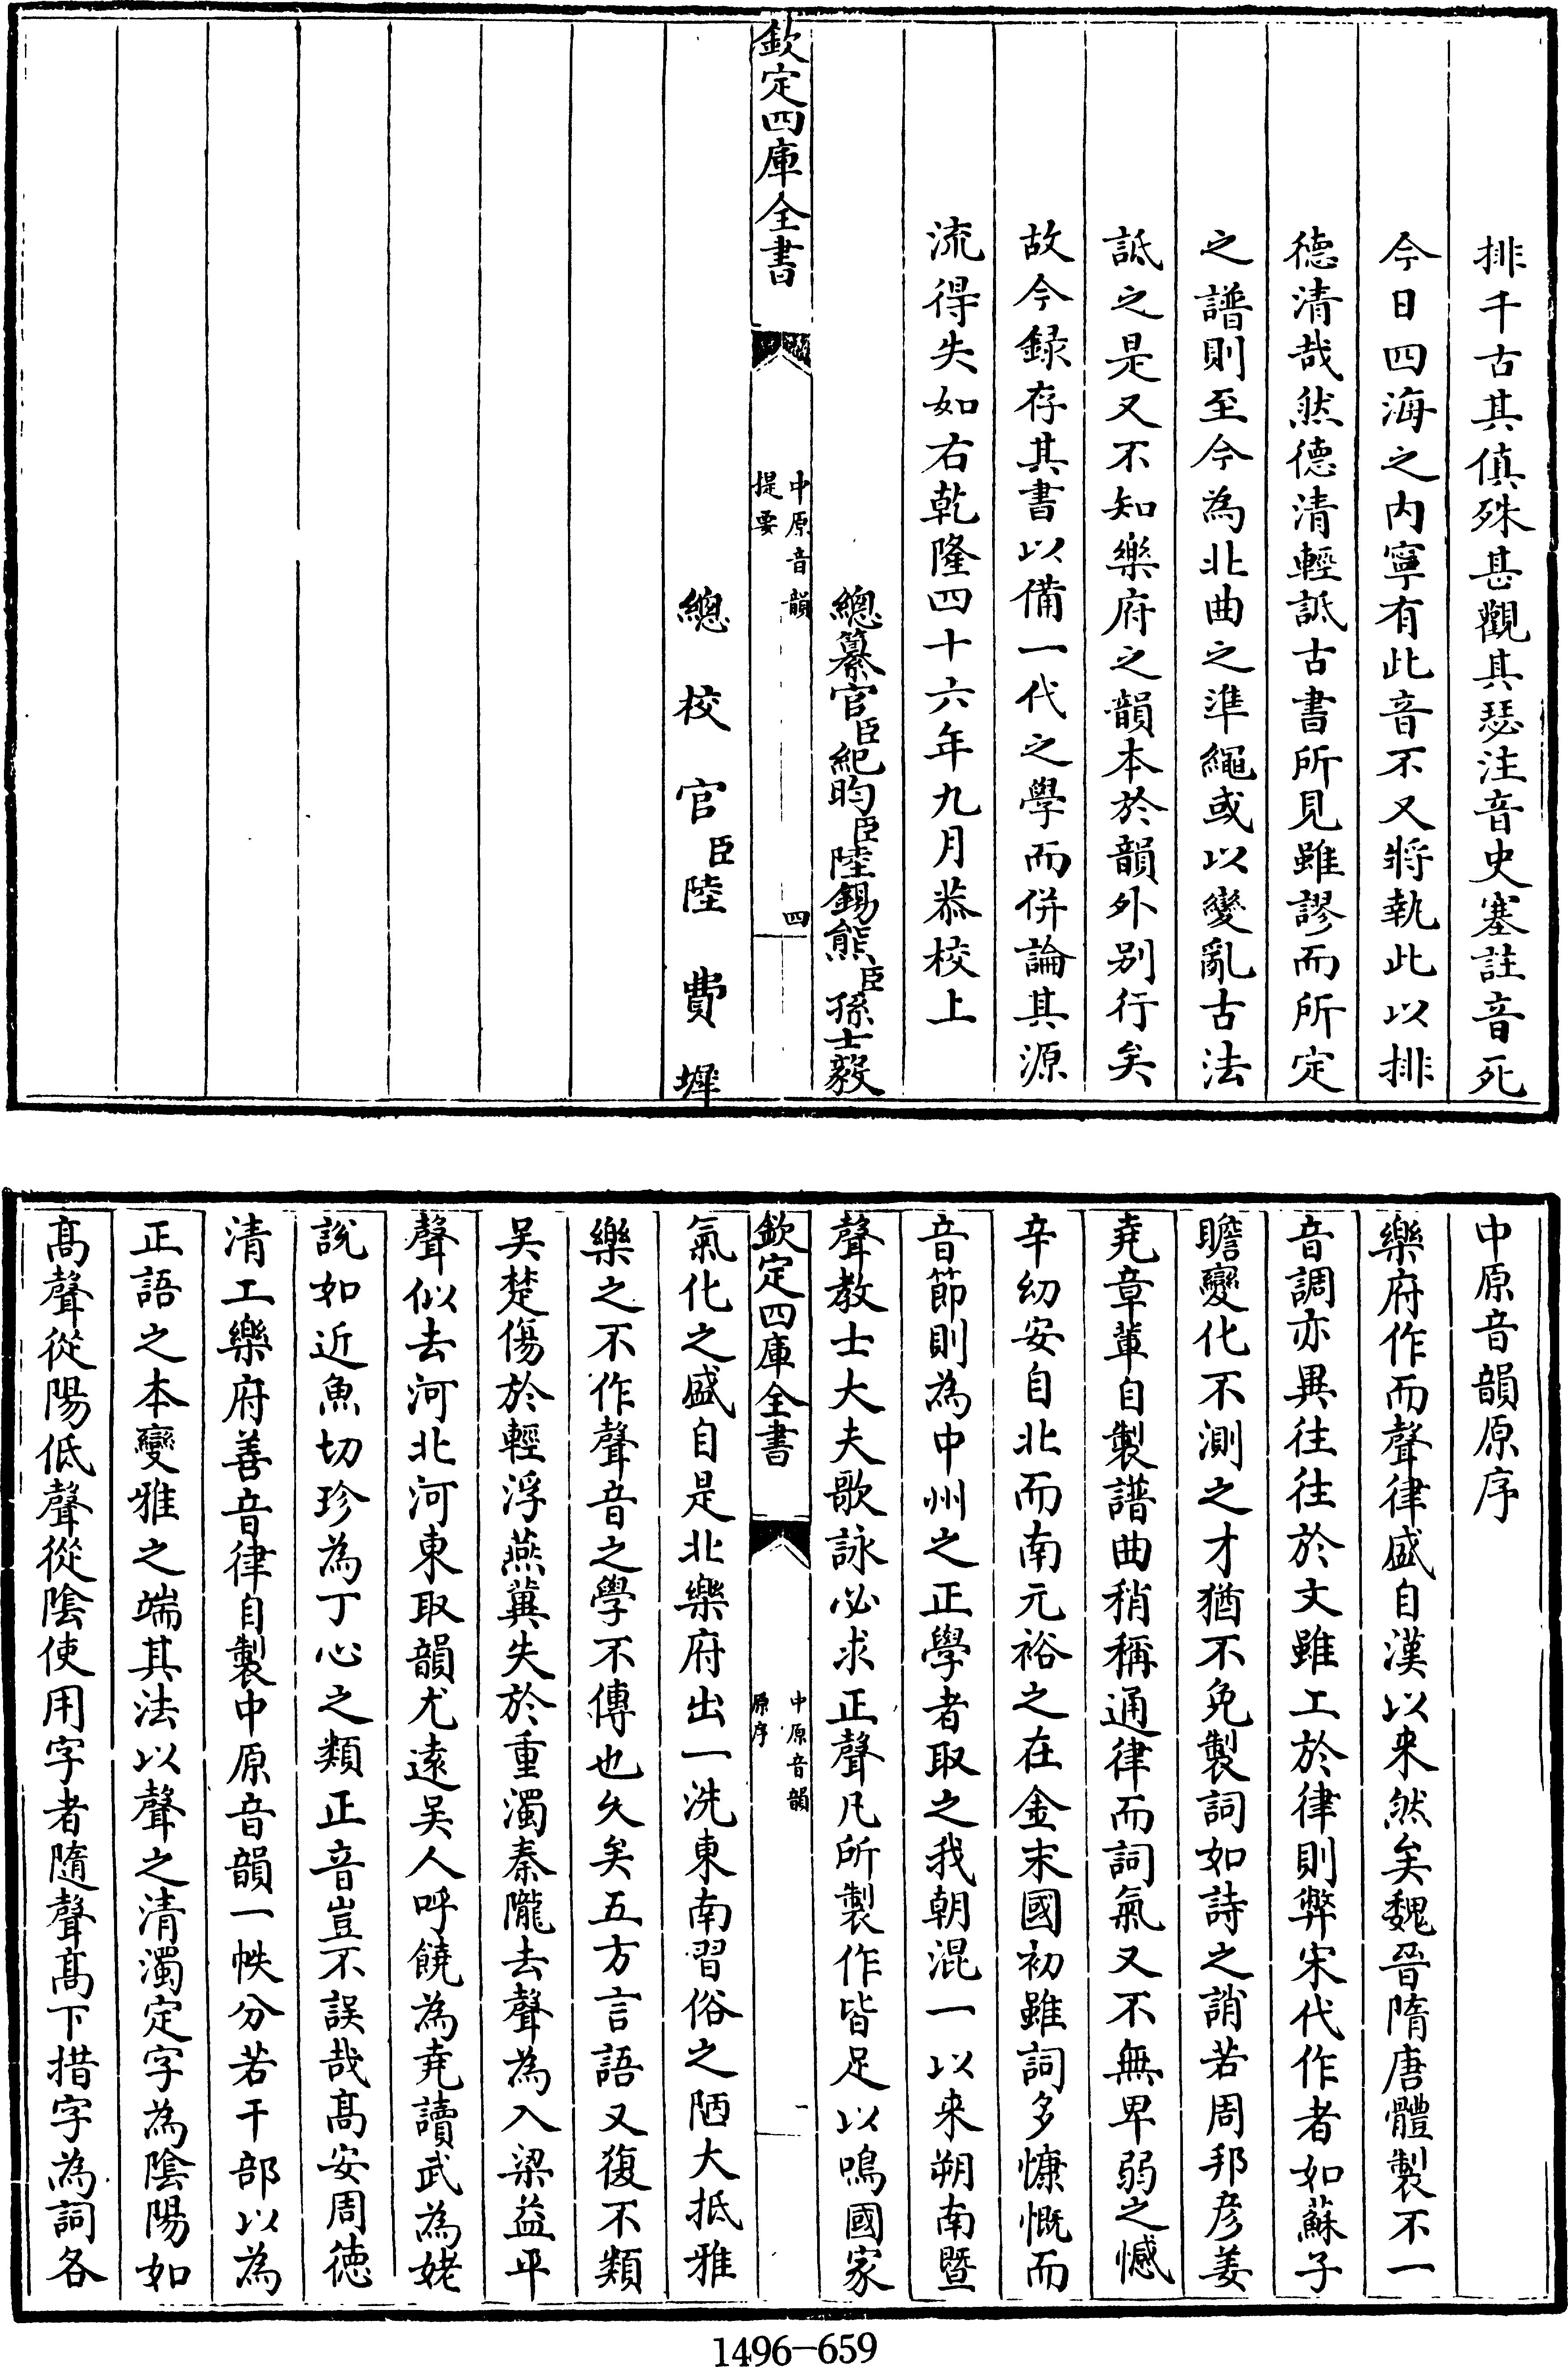 排千古其傎殊甚觀其瑟注音史塞註音死
今日四海之内寧有此音不又將執此以排
德清哉然德清輕詆古書所見雖謬而所定
之譜則至今為北曲之準繩或以變亂古法
詆之是又不知樂府之韻本於韻外别行矣
故今録存其書以備一代之學而併論其源
流得失如右乾隆四十六年九月恭校上
總纂官臣紀昀臣陸錫熊臣孫士毅
欽定四庫全書
中原音韻
提要
四
總校官臣陸費墀
中原音韻原序
樂府作而聲律盛自漢以来然矣魏晉隋唐體製不一
音調亦異往往於文雖工於律則弊宋代作者如蘇子
瞻變化不測之才猶不免製詞如詩之誚若周邦彦姜
堯章輩自製譜曲稍稱通律而詞氣又不無卑弱之憾
辛幼安自北而南元裕之在金末國初雖詞多慷慨而
音節則為中州之正學者取之我朝混一以来朔南暨
聲教士大夫歌詠必求正聲凡所製作皆足以鳴國家
欽定四庫全書
中原音韻
原序
一
氣化之盛自是北樂府出一洗東南習俗之陋大抵雅
樂之不作聲音之學不傳也久矣五方言語又復不類
吴楚傷於輕浮燕冀失於重濁秦隴去聲為入梁益平
聲似去河北河東取韻尤逺吴人呼饒為堯讀武為姥
説如近魚切珍為丁心之類正音豈不誤哉髙安周徳
清工樂府善音律自製中原音韻一帙分若干部以為
正語之本變雅之端其法以聲之清濁定字為隂陽如
髙聲從陽低聲從隂使用字者隨聲髙下措字為詞各
1496-659